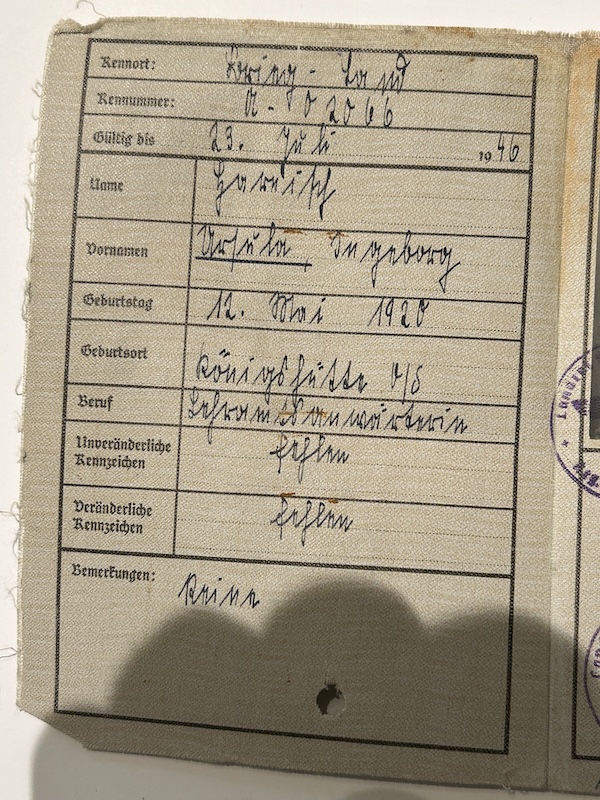 Kennort: Brieg - Land
Kennummer: A - 02066
Gültig bis 23. Juli 1946
Name Harnisch
Vornamen Ursula Ingeborg
Geburtstag 12. Mai 1920
Geburtsort Königshütte O/S
Beruf Lehramtsanwärterin
Unveränderliche Kennzeichen fehlen
Veränderliche Kennzeichen fehlen
Bemerkungen: Keine